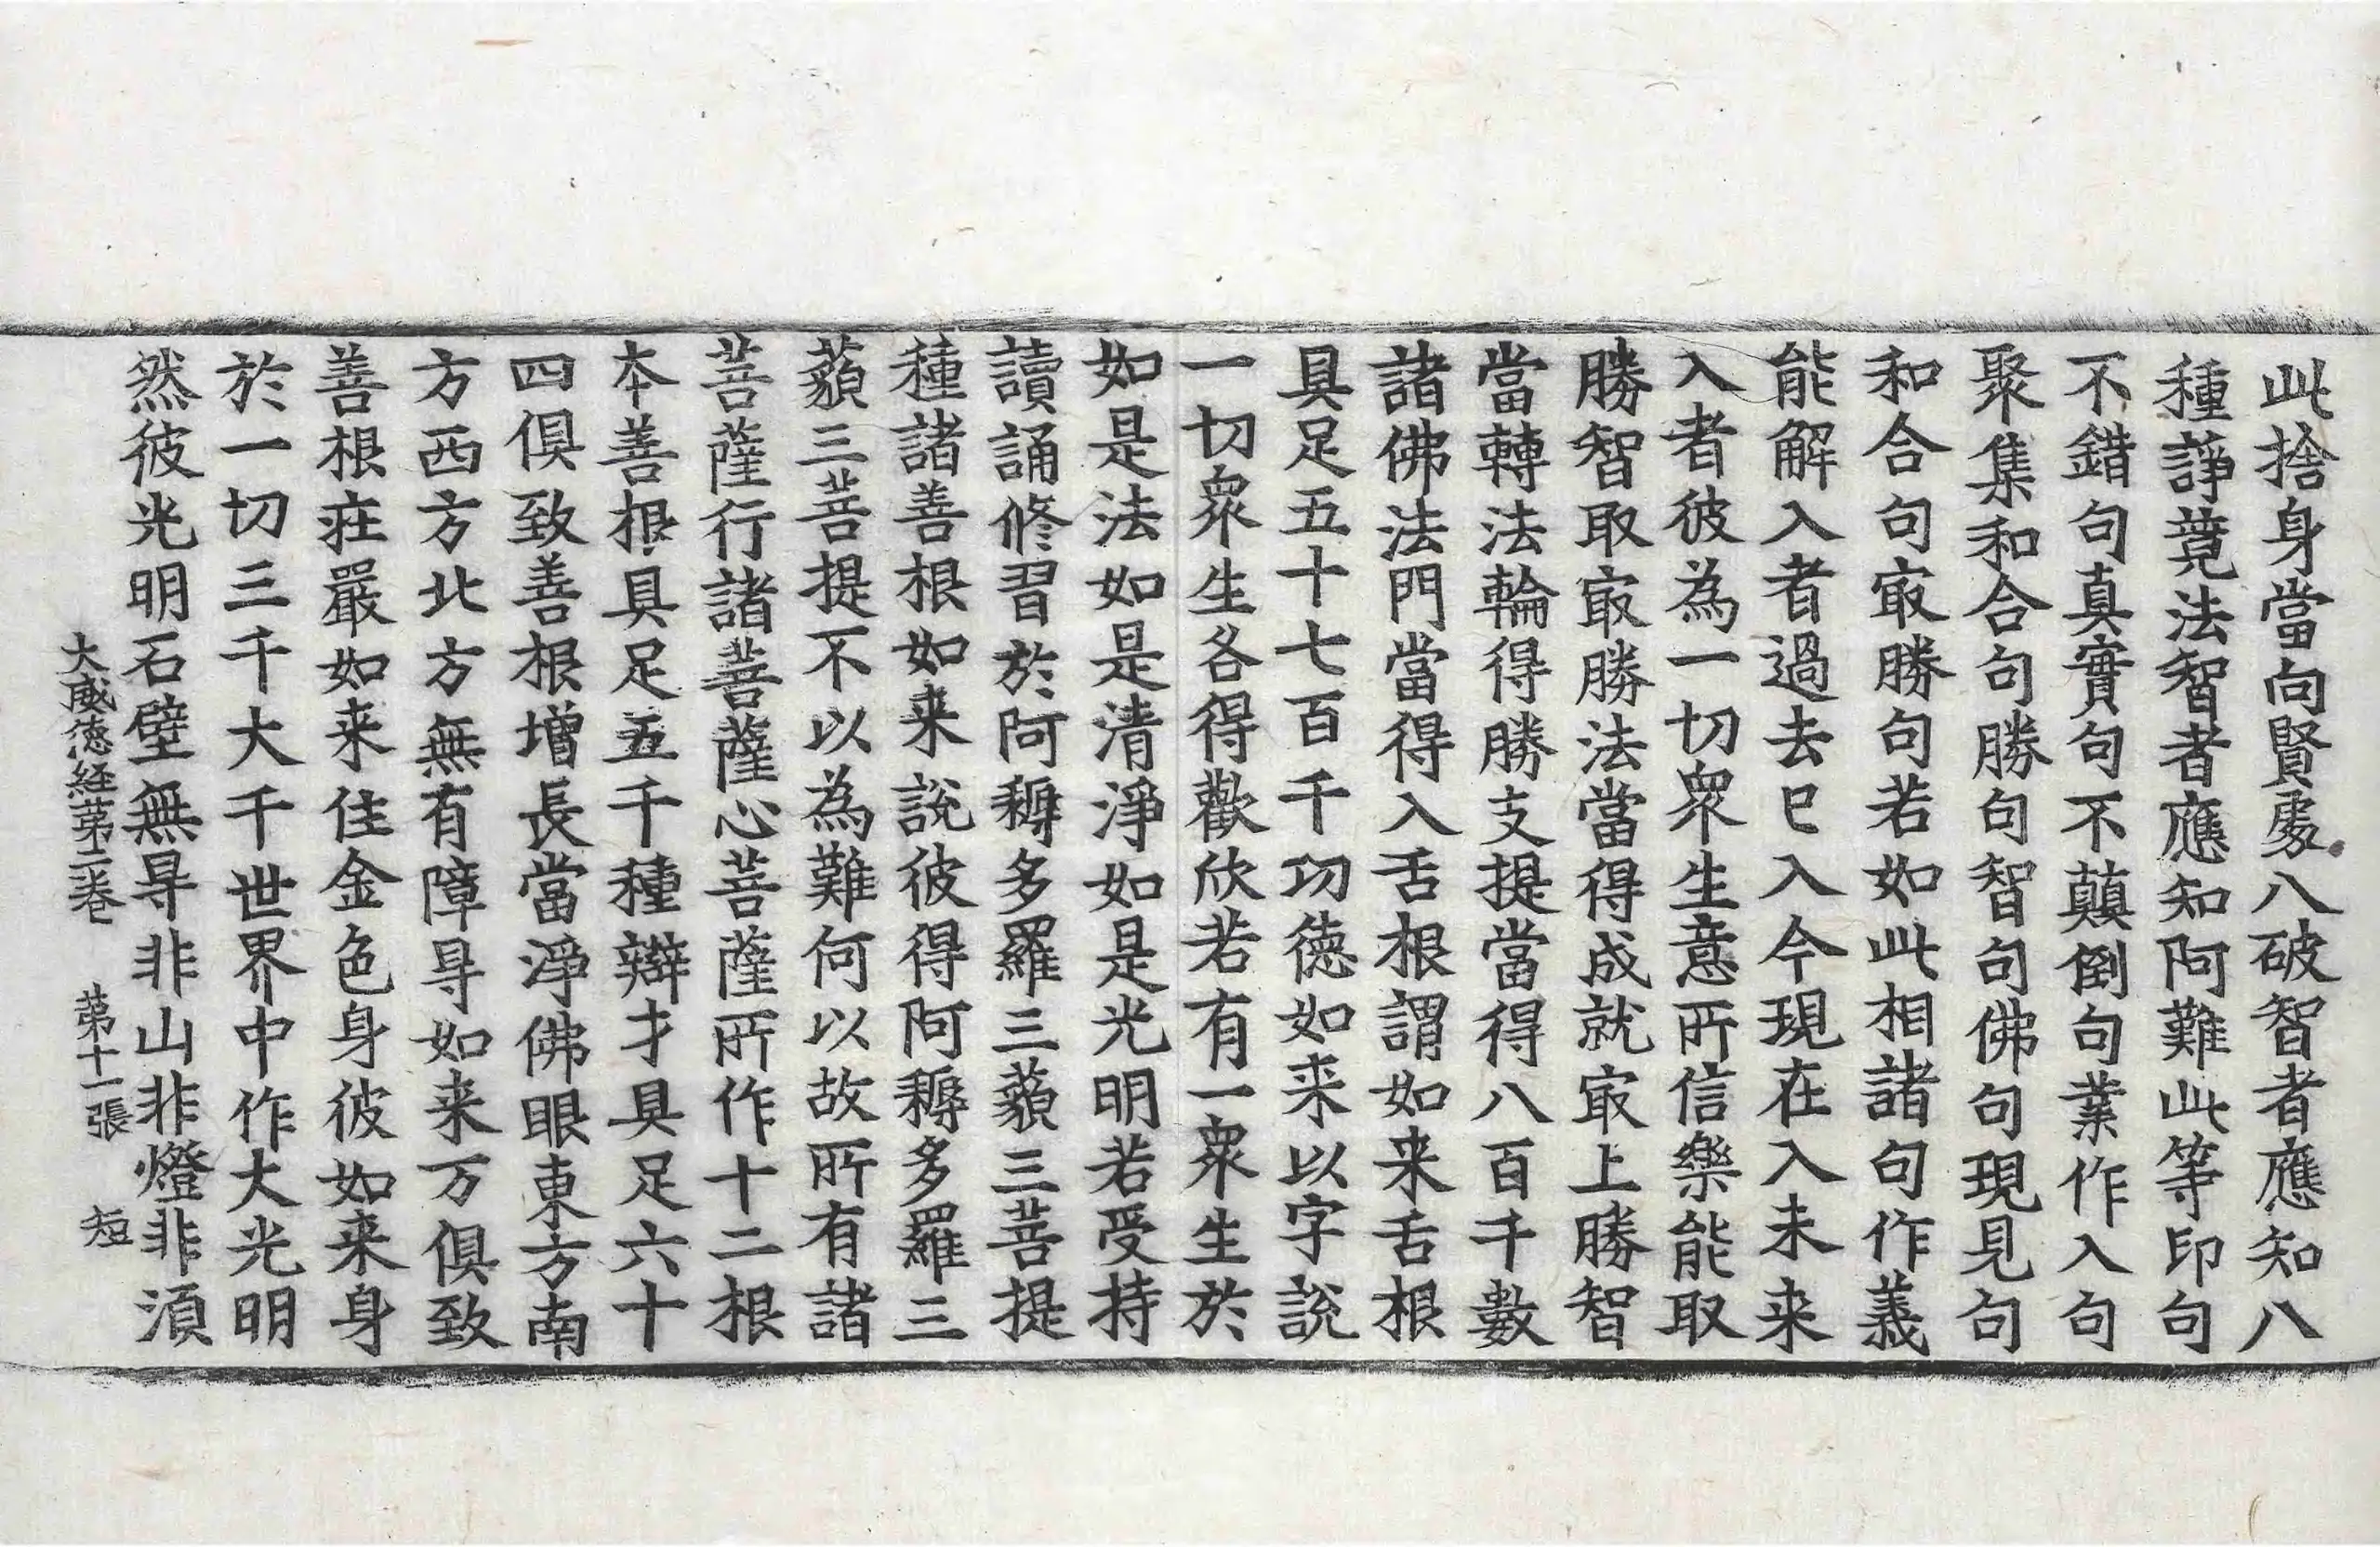 此捨身當向賢䖏八破智者應知八
種諍竟法智者應知阿難此等印句
不錯句真實句不顛倒句業作入句
聚集和合句勝句智句佛句現見句
和合句冣勝句若如此相諸句作義
能解入者過去已入今現在入未来
入者彼為一切衆生意所信樂能取
勝智取冣勝法當得成就冣上勝智
當轉法輪得勝支提當得八百千數
諸佛法門當得入舌根謂如来舌根
具足五十七百千功徳如来以字說
一切衆生各得歡欣若有一衆生於
如是法如是清淨如是光明若受持
讀誦修習於阿耨多羅三藐三菩提
種諸善根如来說彼得阿耨多羅三
藐三菩提不以為難何以故所有諸
菩薩行諸菩薩心菩薩所作十二根
本善根具足五千種辯才具足六十
四俱致善根增長當淨佛眼東方南
方西方北方無有障㝵如来万俱致
善根莊嚴如来佳金色身彼如来身
於一切三千大千世界中作大光明
然彼光明石壁無㝵非山非燈非湏
大威徳経第二卷　第十一張　短